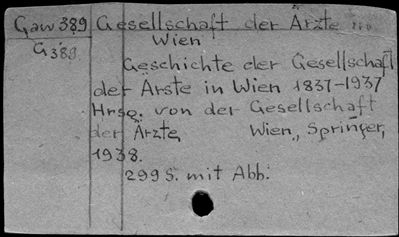 Gaw 389 Gesellschaft der Ärzte in
G 389 Wien
Geschichte der Gesellschaft
der Ärste in Wien 1837-1937
Hrsg. von der Gesellschaft
der Ärzte Wien, Springer,
1938.
299 S. mit Abb.